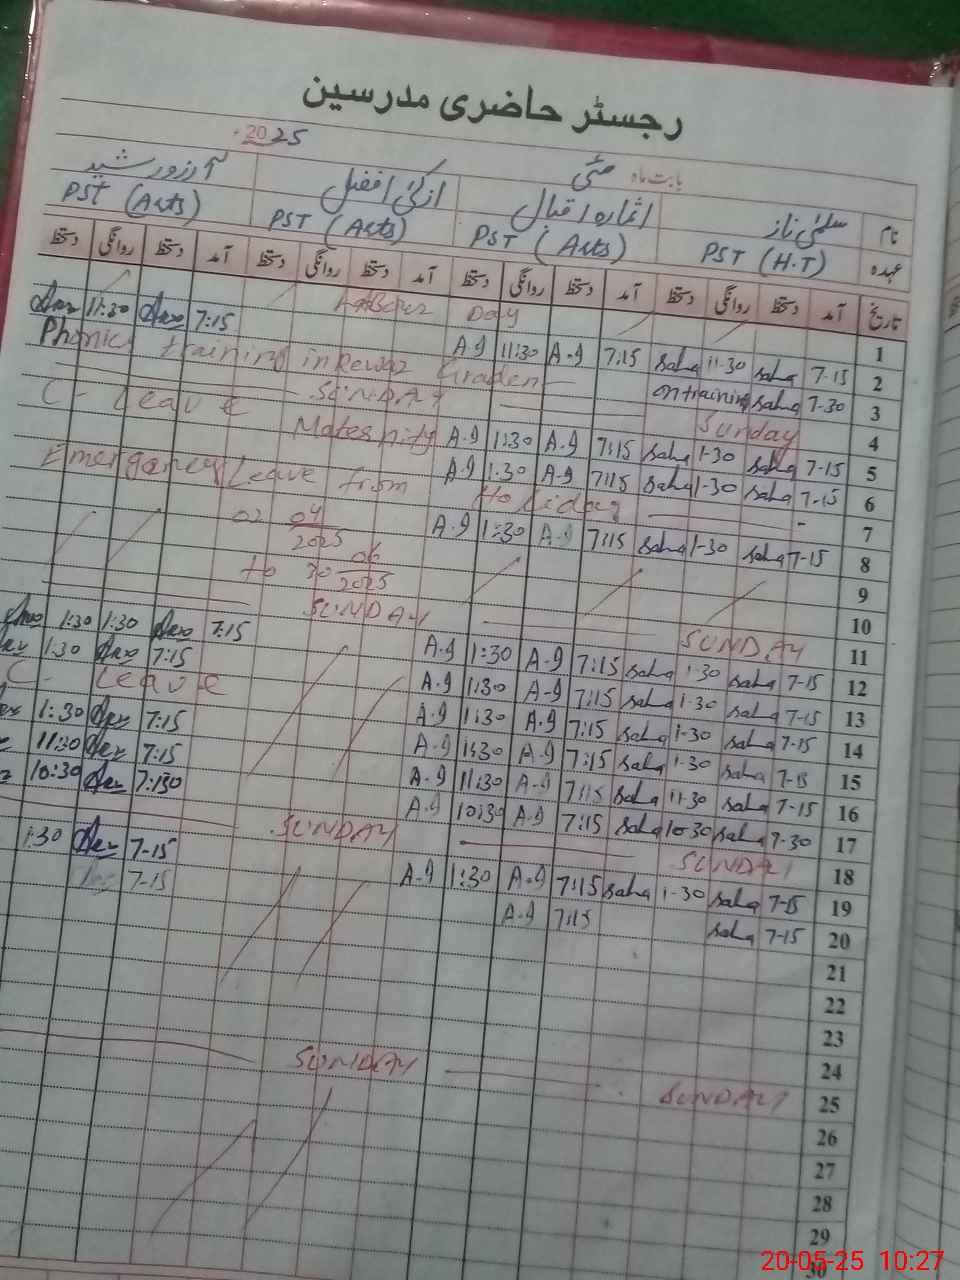 رجسٹر حاضری مدرسین
بابت ماہ مئی 2025
نام سلمیٰ ناز اقبال افضل
عہدہ PST (H.T) PST (Arts) PST (Arts) PST (Arts)
تاریخ آمد دستخط روانگی دستخط آمد دستخط روانگی دستخط آمد دستخط روانگی دستخط آمد دستخط روانگی دستخط
1 Labour Day
2 7-15 saha 11-30 saha 7:15 A.I 11:30 A.I 7:15 11:30
3 7-30 saha on training Phonics training in Graden
4 Sunday SUNDAY
5 7-15 saha 1-30 saha 7:15 A.I 1:30 A.I Maternity C- Leave
6 7-15 saha 1-30 saha 7:15 A.I 1:30 A.I
7 Holiday Leave from Emergancy
8 7-15 saha 1-30 saha 7:15 A.I 1:30 A.I 02 04 2025
9 to 30 06 2025
10
11 SUNDAY SUNDAY
12 7-15 saha 1-30 saha 7:15 A.I 1:30 A.I 7:15 1:30 1:30
13 7-15 saha 1-30 saha 7:15 A.I 1:30 A.I 7:15 1:30
14 7-15 saha 1-30 saha 7:15 A.I 1:30 A.I C- Leave
15 7-15 saha 1-30 saha 7:15 A.I 1:30 A.I 7:15 1:30
16 7-15 saha 11-30 saha 7:15 A.I 11:30 A.I 7:15 11:30
17 7-30 saha 10-30 saha 7:15 A.I 10:30 A.I 7:130 10:30
18 SUNDAY SUNDAY
19 7-15 saha 1-30 saha 7:15 A.I 1:30 A.I 7-15 1:30
20 7-15 saha 7:15 A.I 7-15
21
22
23
24
25 SUNDAY SUNDAY
26
27
28
29
30
20-05-25 10:27